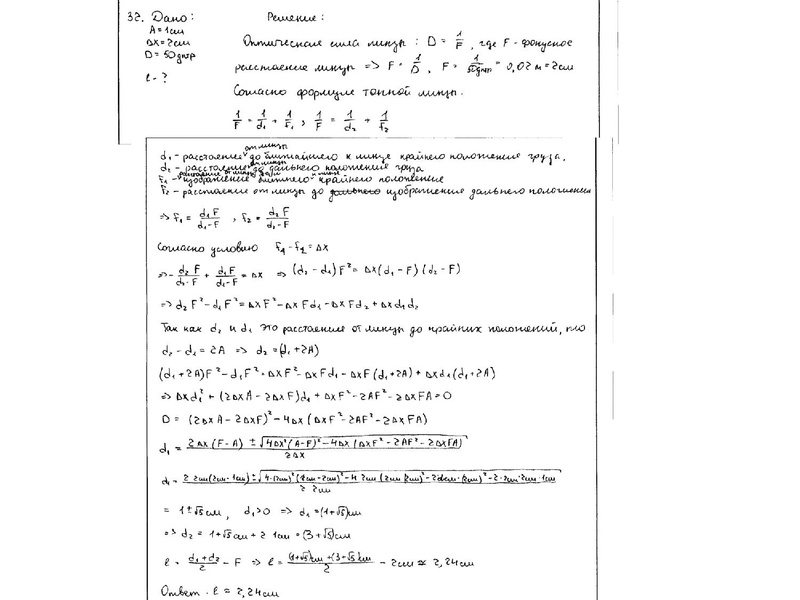 32. Дано: Решение:
A = 1см
ΔX = 2см
D = 50дптр
l - ?
Оптическая сила линзы: D = 1/F, где F - фокусное
расстояние линзы => F = 1/D, F = 1/50дптр = 0,02 м = 2см
Согласно формуле тонкой линзы.
1/F = 1/d₁ + 1/f₁, 1/F = 1/d₂ + 1/f₂
d₁ - расстояние от линзы до ближайшего к линзе крайнего положения груза.
d₂ - расстояние от линзы до дальнего положения груза
f₁ - расстояние от линзы до изображение ближнего крайнего положения
f₂ - расстояние от линзы до изображение дальнего положения
=> f₁ = d₁F/(d₁-F), f₂ = d₂F/(d₁-F)
Согласно условию f₁ - f₂ = ΔX
=> - d₂F/(d₂-F) + d₁F/(d₁-F) = ΔX => (d₂ - d₁)F² = ΔX(d₁-F)(d₂-F)
=> d₂F² - d₁F² = ΔXF² - ΔXFd₁ - ΔXFd₂ + ΔXd₁d₂
Так как d₂ и d₁ это расстояние от линзы до крайних положений, то
d₂ - d₁ = 2A => d₂ = (d₁ + 2A)
(d₁+2A)F² - d₁F² = ΔXF² - ΔXFd₁ - ΔXF(d₁+2A) + ΔXd₁(d₁+2A)
=> ΔXd₁² + (2ΔXA - 2ΔXF)d₁ + ΔXF² - 2AF² - 2ΔXFA = 0
D = (2ΔXA - 2ΔXF)² - 4ΔX(ΔXF² - 2AF² - 2ΔXFA)
d₁ = (2ΔX(F-A) ± √(4ΔX²(A-F)² - 4ΔX(ΔXF² - 2AF² - 2ΔXFA)))/2ΔX
= 1±√5см, d₁>0 => d₁ = (1+√5)см
=> d₂ = 1+√5см + 2·1см = (3+√5)см
l = (d₁+d₂)/2 - F => l = ((1+√5)см + (3+√5)см)/2 - 2см ≈ 2,24см
Ответ: l = 2,24см